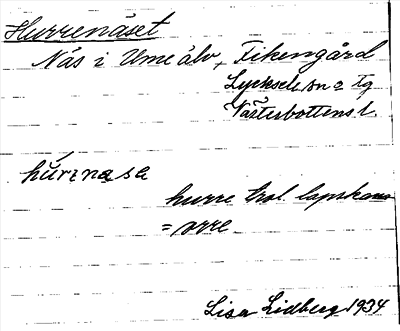 Hurrenäset
Näs i Ume älv, Fikengård
Lycksele sn 2 tg
Västerbottens l.
hŭrɪnasa
hurre trol. lapska
= orre
Lisa Lidberg 1934